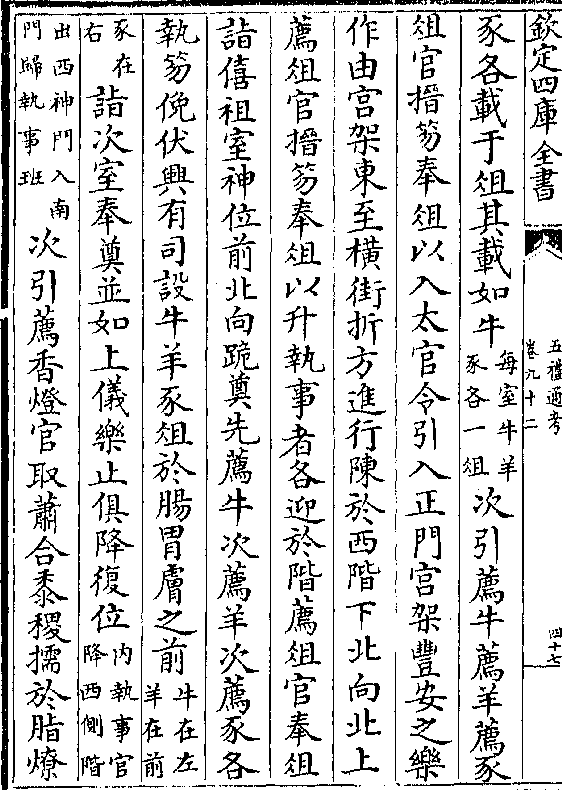 欽定四庫全書
五禮通考
卷九十二
四十七
豕各載于俎其載如牛每室牛羊豕各一俎次引薦牛薦羊薦豕
俎官搢笏奉俎以入太官令引入正門宫架豐安之樂
作由宫架東至橫街折方進行陳於西階下北向北上
薦俎官搢笏奉俎以升執事者各迎於階薦俎官奉俎
詣僖祖室神位前北向跪奠先薦牛次薦羊次薦豕各
執笏俛伏興有司設牛羊豕俎於腸胃膚之前牛在左羊在前
豕在右詣次室奉奠並如上儀樂止俱降復位内執事官降西側階
出西神門入南門歸執事班次引薦香燈官取蕭合黍稷擩於脂燎